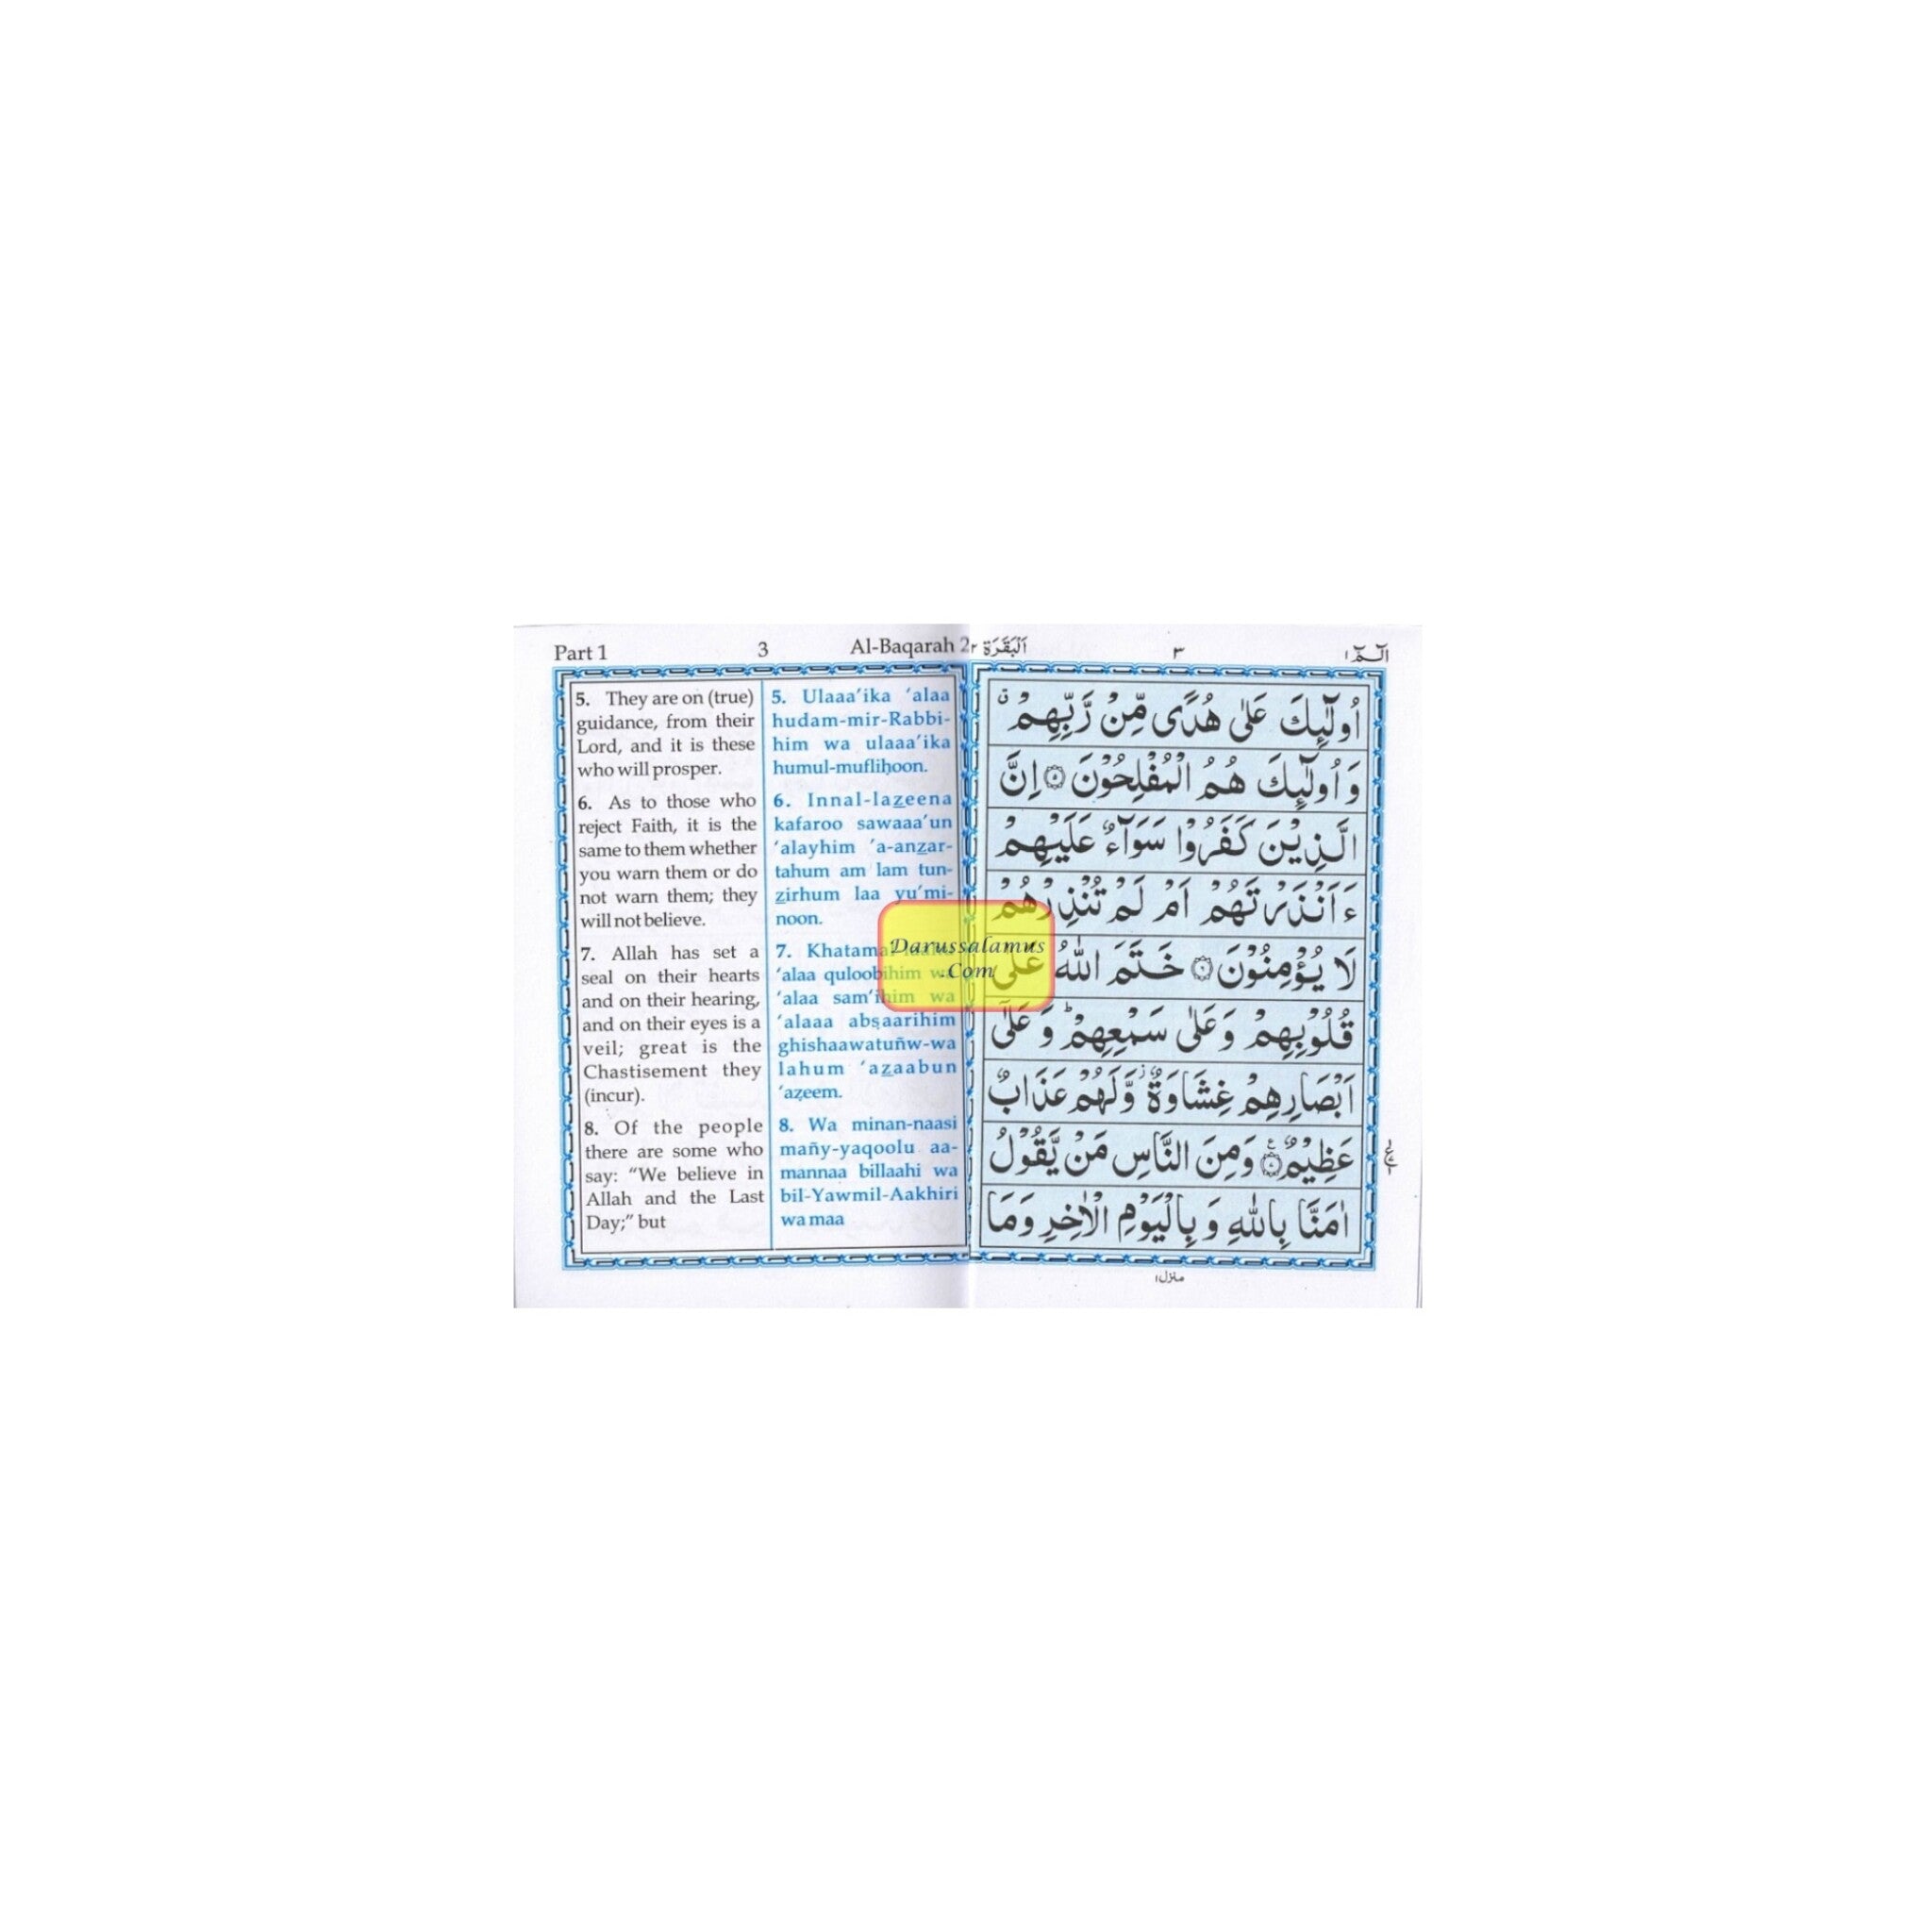 Part 1 3 Al-Baqarah 2
5. They are on (true)
guidance, from their
Lord, and it is these
who will prosper.
6. As to those who
reject Faith, it is the
same to them whether
you warn them or do
not warn them; they
will not believe.
7. Allah has set a
seal on their hearts
and on their hearing,
and on their eyes is a
veil; great is the
Chastisement they
(incur).
8. Of the people
there are some who
say: “We believe in
Allah and the Last
Day;” but
5. Ulaaa’ika ‘alaa
hudam-mir-Rabbi-
him wa ulaaa’ika
humul-mufliḥoon.
6. Innal-lazeena
kafaroo sawaaa’un
‘alayhim ’a-anzar-
tahum am lam tun-
zirhum laa yu’mi-
noon.
7. Khatama
‘alaa quloobihim
‘alaa sam’ihim wa
‘alaaa abṣaarihim
ghishaawatuñw-wa
lahum ‘azaabun
‘aẓeem.
8. Wa minan-naasi
mañy-yaqoolu aa-
mannaa billaahi wa
bil-Yawmil-Aakhiri
wa maa
Darussalamus
.Com
الٓمّٓ ١ ٣ اَلْبَقَرَة ٢
اُولٰٓئِكَ عَلٰى هُدًى مِّنْ رَّبِّهِمْ ۙ
وَاُولٰٓئِكَ هُمُ الْمُفْلِحُوْنَ ۝٥ اِنَّ
الَّذِيْنَ كَفَرُوْا سَوَآءٌ عَلَيْهِمْ
ءَاَنْذَرْتَهُمْ اَمْ لَمْ تُنْذِرْهُمْ
لَا يُؤْمِنُوْنَ ۝٦ خَتَمَ اللّٰهُ عَلٰى
قُلُوْبِهِمْ وَعَلٰى سَمْعِهِمْ ؕ وَعَلٰٓى
اَبْصَارِهِمْ غِشَاوَةٌ ز وَّلَهُمْ عَذَابٌ
عَظِيْمٌ ۝٧ وَمِنَ النَّاسِ مَنْ يَّقُوْلُ
اٰمَنَّا بِاللّٰهِ وَبِالْيَوْمِ الْاٰخِرِ وَمَا
منزل ١